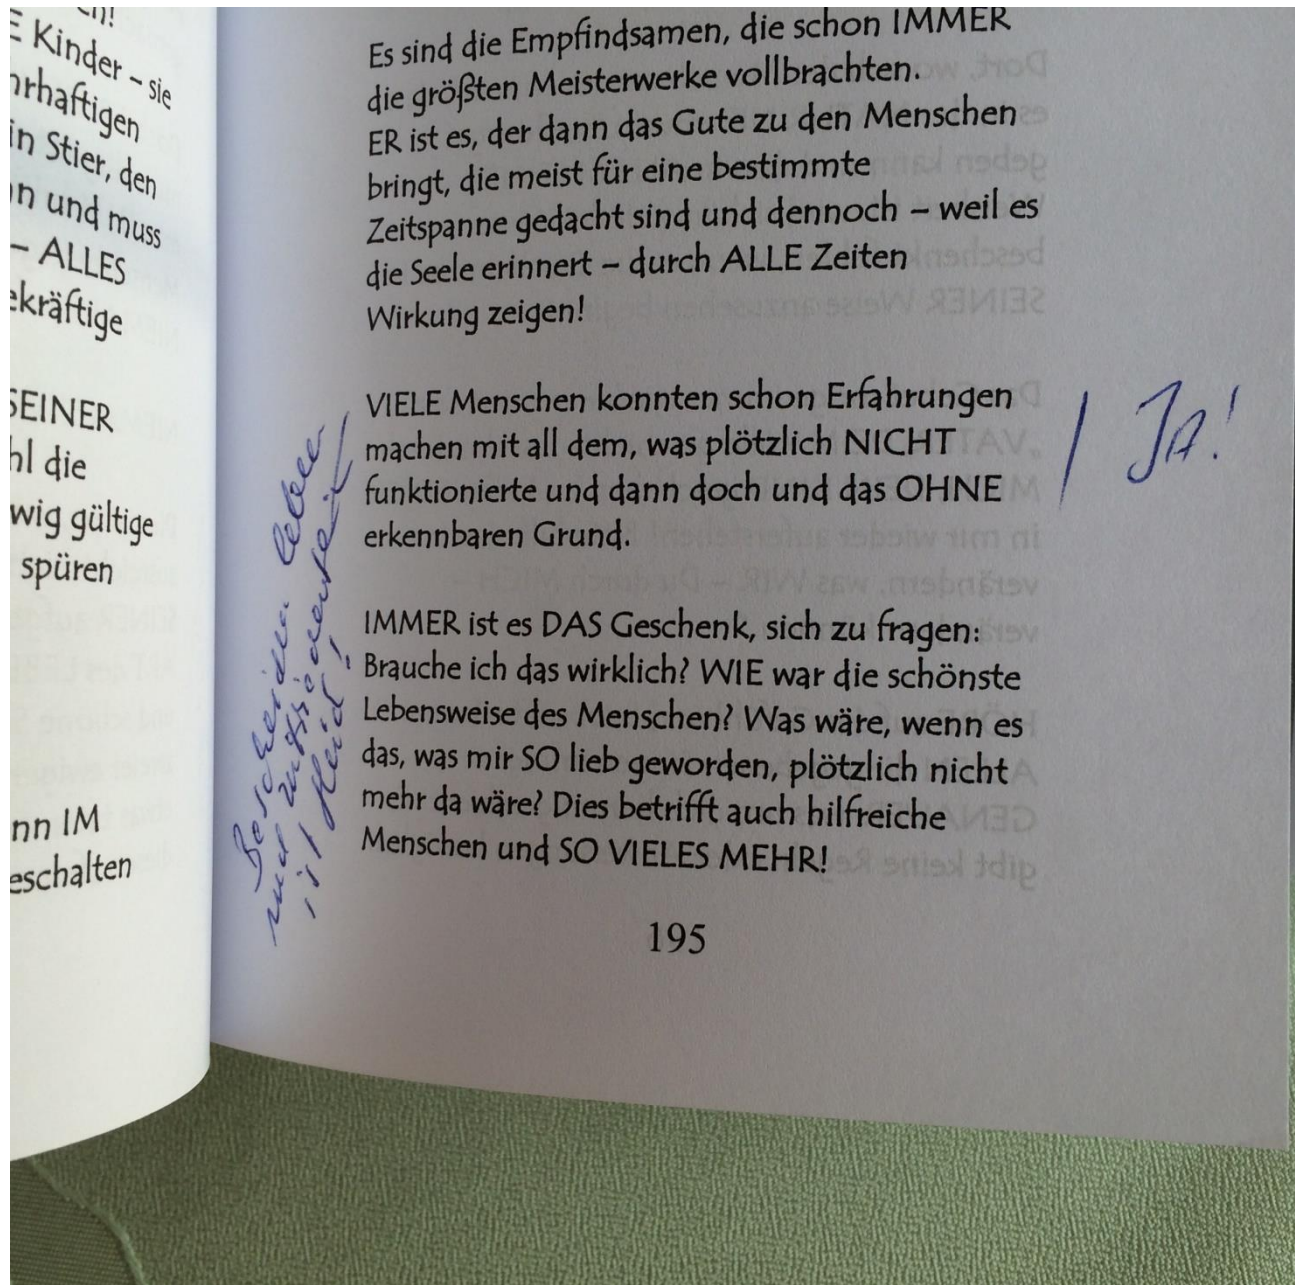 E Kinder – sie
in Stier, den
n und muss
– ALLES
SEINER
hl die
wig gültige
spüren
nn IM
eschalten
Es sind die Empfindsamen, die schon IMMER
die größten Meisterwerke vollbrachten.
ER ist es, der dann das Gute zu den Menschen
bringt, die meist für eine bestimmte
Zeitspanne gedacht sind und dennoch – weil es
die Seele erinnert – durch ALLE Zeiten
Wirkung zeigen!
VIELE Menschen konnten schon Erfahrungen
machen mit all dem, was plötzlich NICHT
funktionierte und dann doch und das OHNE
erkennbaren Grund.
IMMER ist es DAS Geschenk, sich zu fragen:
Brauche ich das wirklich? WIE war die schönste
Lebensweise des Menschen? Was wäre, wenn es
das, was mir SO lieb geworden, plötzlich nicht
mehr da wäre? Dies betrifft auch hilfreiche
Menschen und SO VIELES MEHR!
195
JA!
Bescheiden leben
und
ist